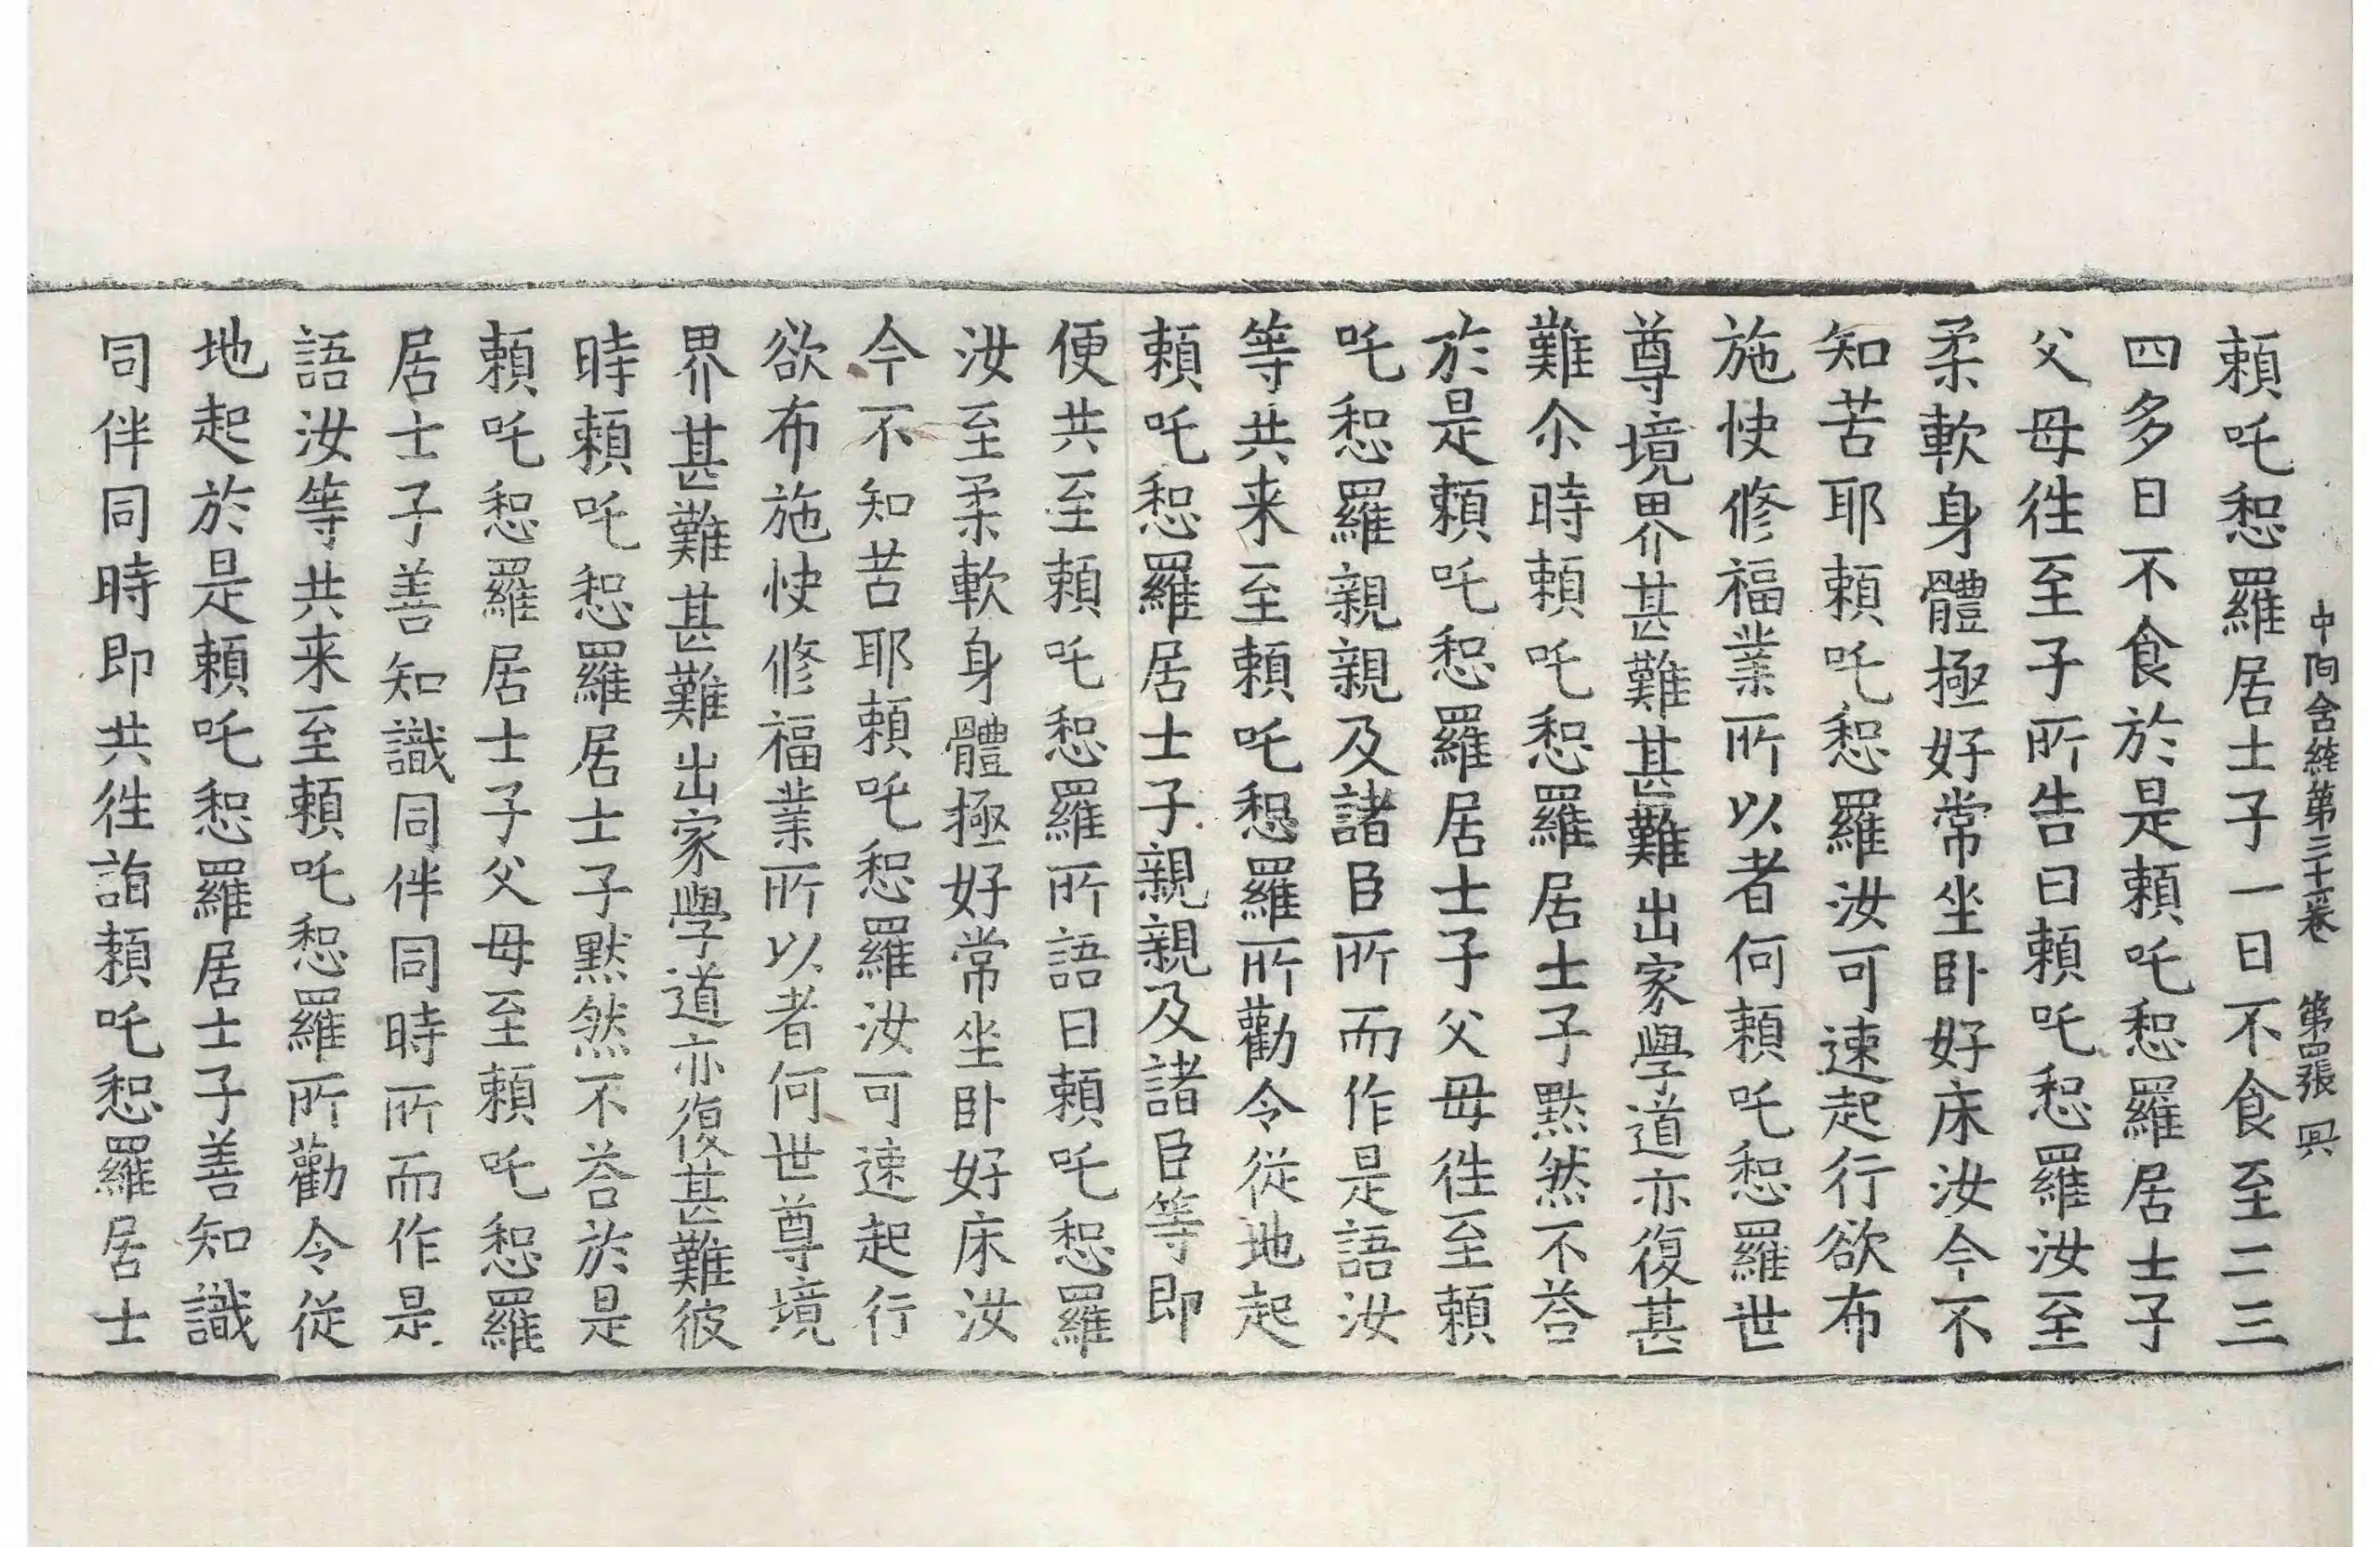 中阿含経第三十一卷 第四張 興
頼吒惒羅居士子一日不食至二三
四多日不食於是頼吒惒羅居士子
父母往至子所告曰頼吒惒羅汝至
柔軟身體極好常坐卧好床汝今不
知苦耶頼吒惒羅汝可速起行欲布
施快修福業所以者何頼吒惒羅世
尊境界甚難甚難出家學道亦復甚
難尒時頼吒惒羅居士子黙然不荅
於是頼吒惒羅居士子父母往至頼
吒惒羅親親及諸臣所而作是語汝
等共来至頼吒惒羅所勸令従地起
頼吒惒羅居士子親親及諸臣等即
便共至頼吒惒羅所語曰頼吒惒羅
汝至柔軟身體極好常坐卧好床汝
今不知苦耶頼吒惒羅汝可速起行
欲布施快修福業所以者何世尊境
界甚難甚難出家學道亦復甚難彼
時頼吒惒羅居士子黙然不荅於是
頼吒惒羅居士子父母至頼吒惒羅
居士子善知識同伴同時所而作是
語汝等共来至頼吒惒羅所勸令従
地起於是頼吒惒羅居士子善知識
同伴同時即共往詣頼吒惒羅居士